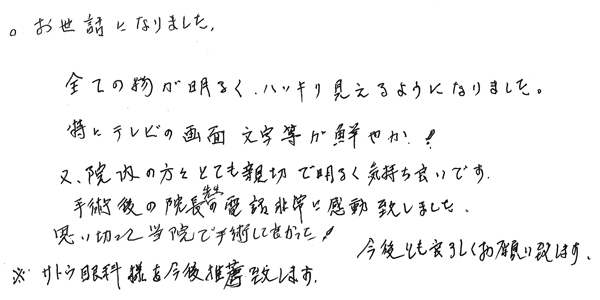 ○ お世話になりました。
全ての物が明るく、ハッキリ見えるようになりました。
特にテレビの画面 文字等が鮮やか!
又、院内の方々とても親切で明るく気持ち良いです。
手術後の院長先生の電話非常に感動致しました。
思い切って当院で手術して良かった!
今後とも宜しくお願い致します。
※ サトウ眼科様を今後推薦致します。